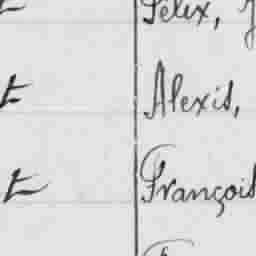 t Félix,
t Alexis,
t François